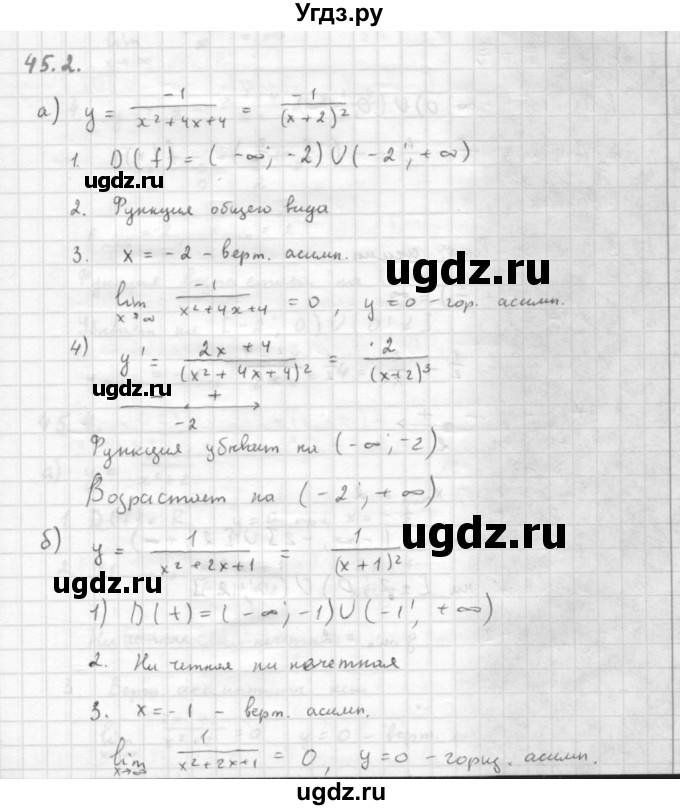 Угдз.ру
45.2.
а) y = -1/(x²+4x+4) = -1/(x+2)²
1. D(f) = (-∞; -2)∪(-2; +∞)
ugdz.ru
2. Функция общего вида
3. x = -2 - верт. асимп.
ugdz.ru
lim x→∞ -1/(x²+4x+4) = 0, y=0 - гор. асимп.
4) y' = (2x+4)/(x²+4x+4)² = 2/(x+2)³
ugdz.ru
- +
-2
Функция убывает на (-∞; -2)
ugdz.ru
Возрастает на (-2; +∞)
ugdz.ru
б) y = 1/(x²+2x+1) = 1/(x+1)²
ugdz.ru
1) D(f) = (-∞; -1)∪(-1; +∞)
2. Ни четная ни нечетная
ugdz.ru
3. x = -1 - верт. асимп.
lim x→∞ 1/(x²+2x+1) = 0, y=0 - гориз. асимп.
ugdz.ru